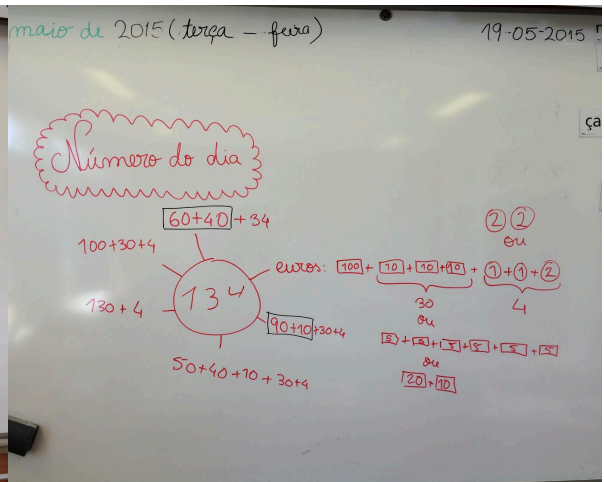 maio de 2015 (terça - feira)
19-05-2015
ça
Número do dia
60+40+34
100+30+4
130+4
134
50+40+10+30+4
90+10+30+4
euros: 100+10+10+10+1+1+2
2 2
ou
30
4
ou
5+5+5+5+5+5
ou
20+10